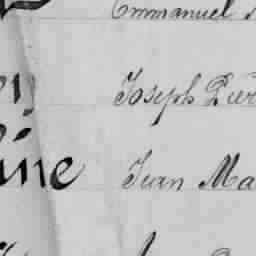 Emmanuel
Joseph Pier
ine Jean Ma